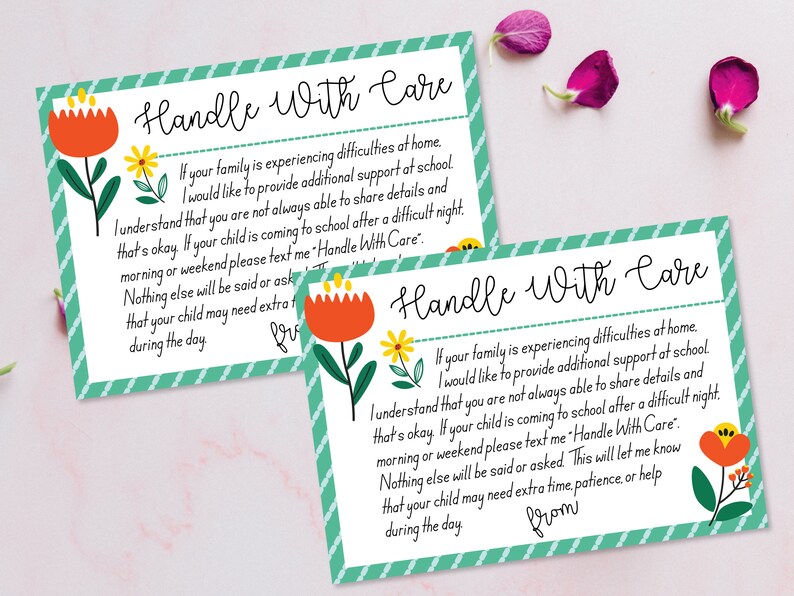 Handle With Care
If your family is experiencing difficulties at home,
I would like to provide additional support at school.
I understand that you are not always able to share details and
that's okay. If your child is coming to school after a difficult night,
morning or weekend please text me "Handle With Care".
Nothing else will be said or
that your child may need extra
during the day.
Handle With Care
If your family is experiencing difficulties at home,
I would like to provide additional support at school.
I understand that you are not always able to share details and
that's okay. If your child is coming to school after a difficult night,
morning or weekend please text me "Handle With Care".
Nothing else will be said or asked. This will let me know
that your child may need extra time, patience, or help
during the day.
from